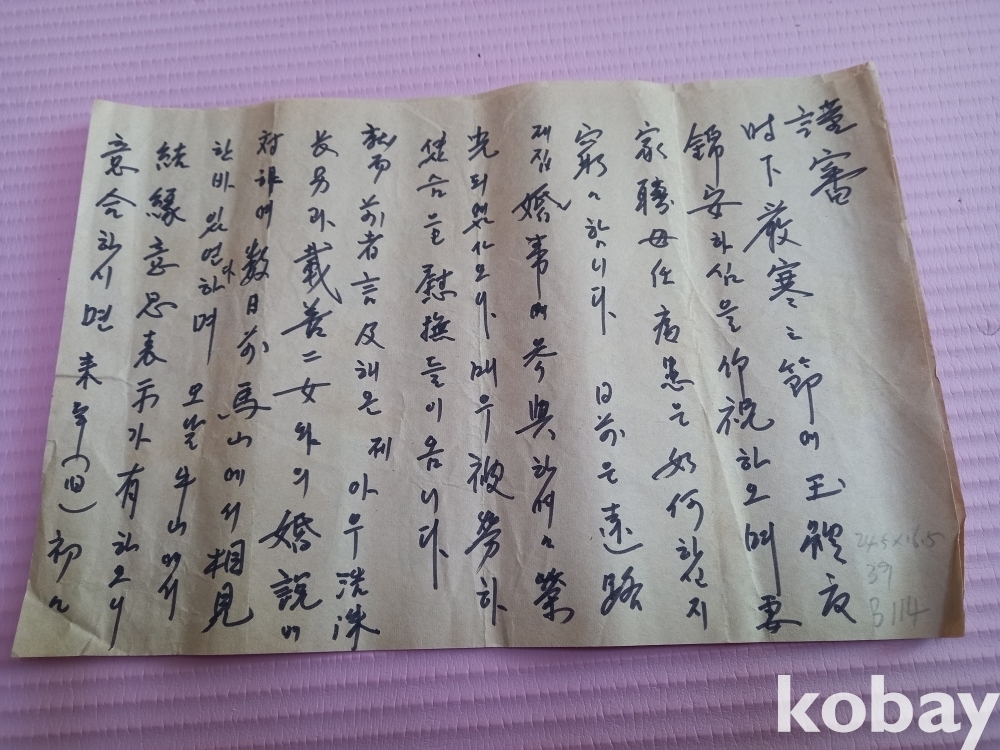 謹審
時下 嚴寒之節에 玉體度
錦安하심을 仰祝하오며 雲
家聘母任 病患은 如何하신지
窮々합니다. 日前은 遠路
제집 婚事에 參與하셔서 榮
光되였사오나. 매우 被勞하
셨슴을 慰撫들이옵니다.
就而前者言及해온 제아우 洪洙
長男과 載善二女와의 婚說에
對하여 數日前 馬山에서 相見
한바 있었다하며 오날 부山에서
結緣意思表示가 有하오니
意合하시면 来年(旧)初에
24.5×16.5
39
B114
kobay